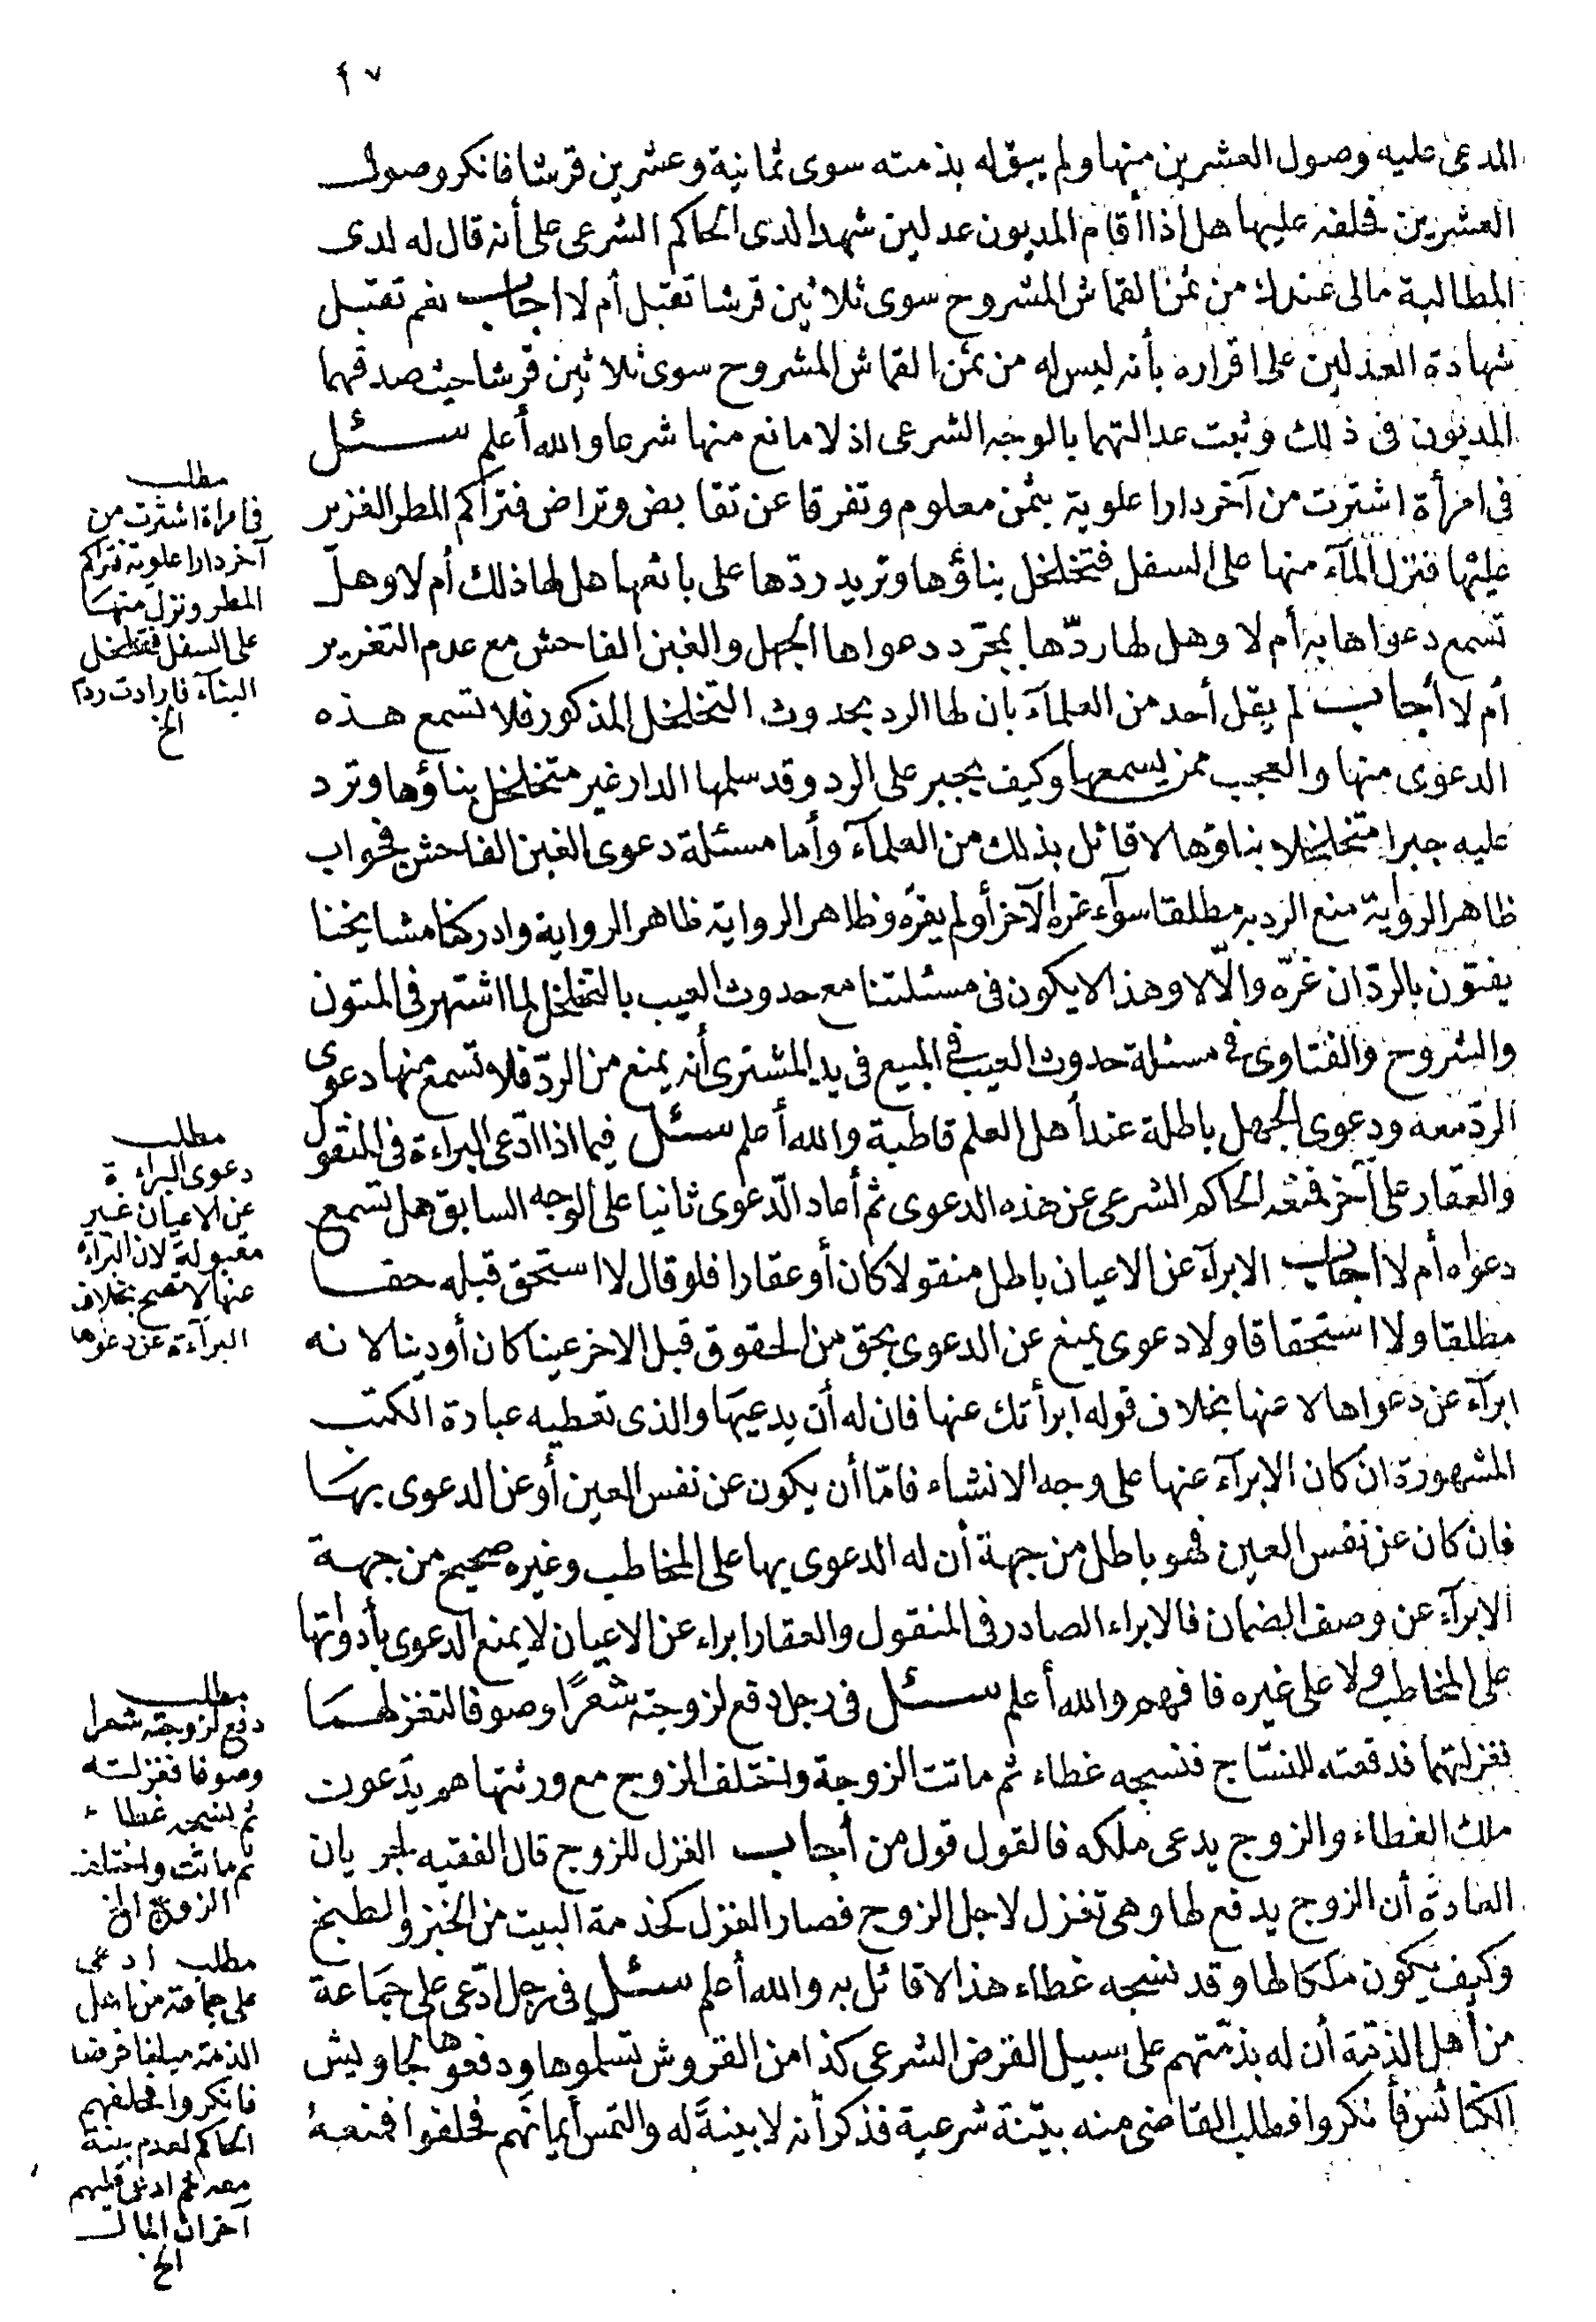 ٤٧
المدعى عليه وصول العشرين منها ولم يبق له بذمته سوى ثمانية وعشرين قرشا فانكر وصول
العشرين فحلفه عليها هل اذا أقام المديون عدلين شهدا لدى الحاكم الشرعى على أنه قال له لدى
المطالبة مالى عندك من ثمن القماش المشروح سوى ثلاثين قرشا تقبل أم لا اجاب نعم تقبل
شهادة العدلين على اقراره بأنه ليس له من ثمن القماش المشروح سوى ثلاثين قرشا حيث صدقهما
المديون فى ذلك وثبت عدالتهما بالوجه الشرعى اذ لا مانع منها شرعا والله أعلم سئل
فى امرأة اشترت من آخر دارا علوية بثمن معلوم وتفرقا عن تقابض وتراض فتراكم المطر الغزير
عليها فنزل المآء منها على السفل فتخلخل بناؤها وتريد ردّها على بائعها هل لها ذلك أم لا وهل
تسمع دعواها به أم لا وهل لها ردّها بمجرّد دعواها الجهل والغبن الفاحش مع عدم التغرير
أم لا أجاب لم يقل أحد من العلمآء بان لها الرد بحدوث التخلخل المذكور فلا تسمع هذه
الدعوى منها والعجب ممن يسمعها وكيف يجبر على الرد وقد سلمها الدار غير متخلخل بناؤها وترد
عليه جبرا متخلخلا بناؤها لا قائل بذلك من العلمآء وأما مسئلة دعوى الغبن الفاحش فجواب
ظاهر الرواية منع الرد به مطلقا سوآء غره الآخر أو لم يغره وظاهر الرواية ظاهر الرواية وادركنا مشايخنا
يفتون بالردّ ان غرّه والّا لا وهذا لا يكون فى مسئلتنا مع حدوث العيب بالتخلخل لما اشتهر فى المتون
والشروح والفتاوى فى مسئلة حدوث العيب فى المبيع فى يد المشترى أنه يمنع من الردّ فلا تسمع منها دعوى
الردّ معه ودعوى الجهل باطلة عند أهل العلم قاطبة والله أعلم سئل فيما اذا ادّعى البراءة فى المنقول
والعقار على آخر فمنعه الحاكم الشرعى عن هذه الدعوى ثم أعاد الدّعوى ثانيا على الوجه السابق هل تسمع
دعواه أم لا اجاب الابرآء عن الاعيان باطل منقولا كان أو عقارا فلو قال لا استحق قبله حقا
مطلقا ولا استحقاقا ولا دعوى يمنع عن الدعوى بحق من الحقوق قبل الاخر عينا كان أو دينا لانه
ابرآء عن دعواها لا عنها بخلاف قوله أبرأتك عنها فان له أن يدعيها والذى تعطيه عبارة الكتب
المشهورة ان كان الابرآء عنها على وجه الانشاء فامّا أن يكون عن نفس العين أو عن الدعوى بها
فان كان عن نفس العين فهو باطل من جهة أن له الدعوى بها على المخاطب وغيره صحيح من جهة
الابرآء عن وصف الضمان فالابراء الصادر فى المنقول والعقار ابراء عن الاعيان لا يمنع الدعوى بأدواتها
على المخاطب ولا على غيره فافهم والله أعلم سئل فى رجل دفع لزوجته شعرًا وصوفا لتغزلهما
فغزلتهما فدفعته للنسّاج فنسجه غطاء ثم ماتت الزوجة واختلف الزوج مع ورثتها هم يدّعون
ملك الغطاء والزوج يدعى ملكه فالقول قول من أجاب الغزل للزوج قال الفقيه لجريان
العادة أن الزوج يدفع لها وهى تغزل لاجل الزوج فصار الغزل كخدمة البيت من الخبز والطبخ
وكيف يكون ملكا لها وقد نسجه غطاء هذا لا قائل به والله أعلم سئل فى رجل ادّعى على جماعة
من أهل الذمّة أن له بذمّتهم على سبيل القرض الشرعى كذا من القروش تسلموها ودفعوها لجاويش
الكنائس فأنكروا فطلب القاضى منه بيّنة شرعية فذكر أنه لا بينة له والتمس أيمانهم فحلفوا فمنعه
مطلب
فى امراة اشترت من
آخر دارا علوية فتراكم
المطر ونزل منها
على السفل فتخلخل
البنآء فارادت رده
الخ
مطلب
دعوى البراءة
عن الاعيان غير
مقبولة لان البرآة
عنها لا تصح بخلاف
البرآءة عن دعواها
مطلب
دفع لزوجته شعرا
وصوفا فغزلته
ثم نسجه غطاء
ثم ماتت واختلف
الزوج الخ
مطلب ادعى
على جماعة من اهل
الذمة مبلغا قرضا
فانكروا فحلفهم
الحاكم لعدم بينة
معه ثم ادعى عليهم
آخر ان المال
الخ